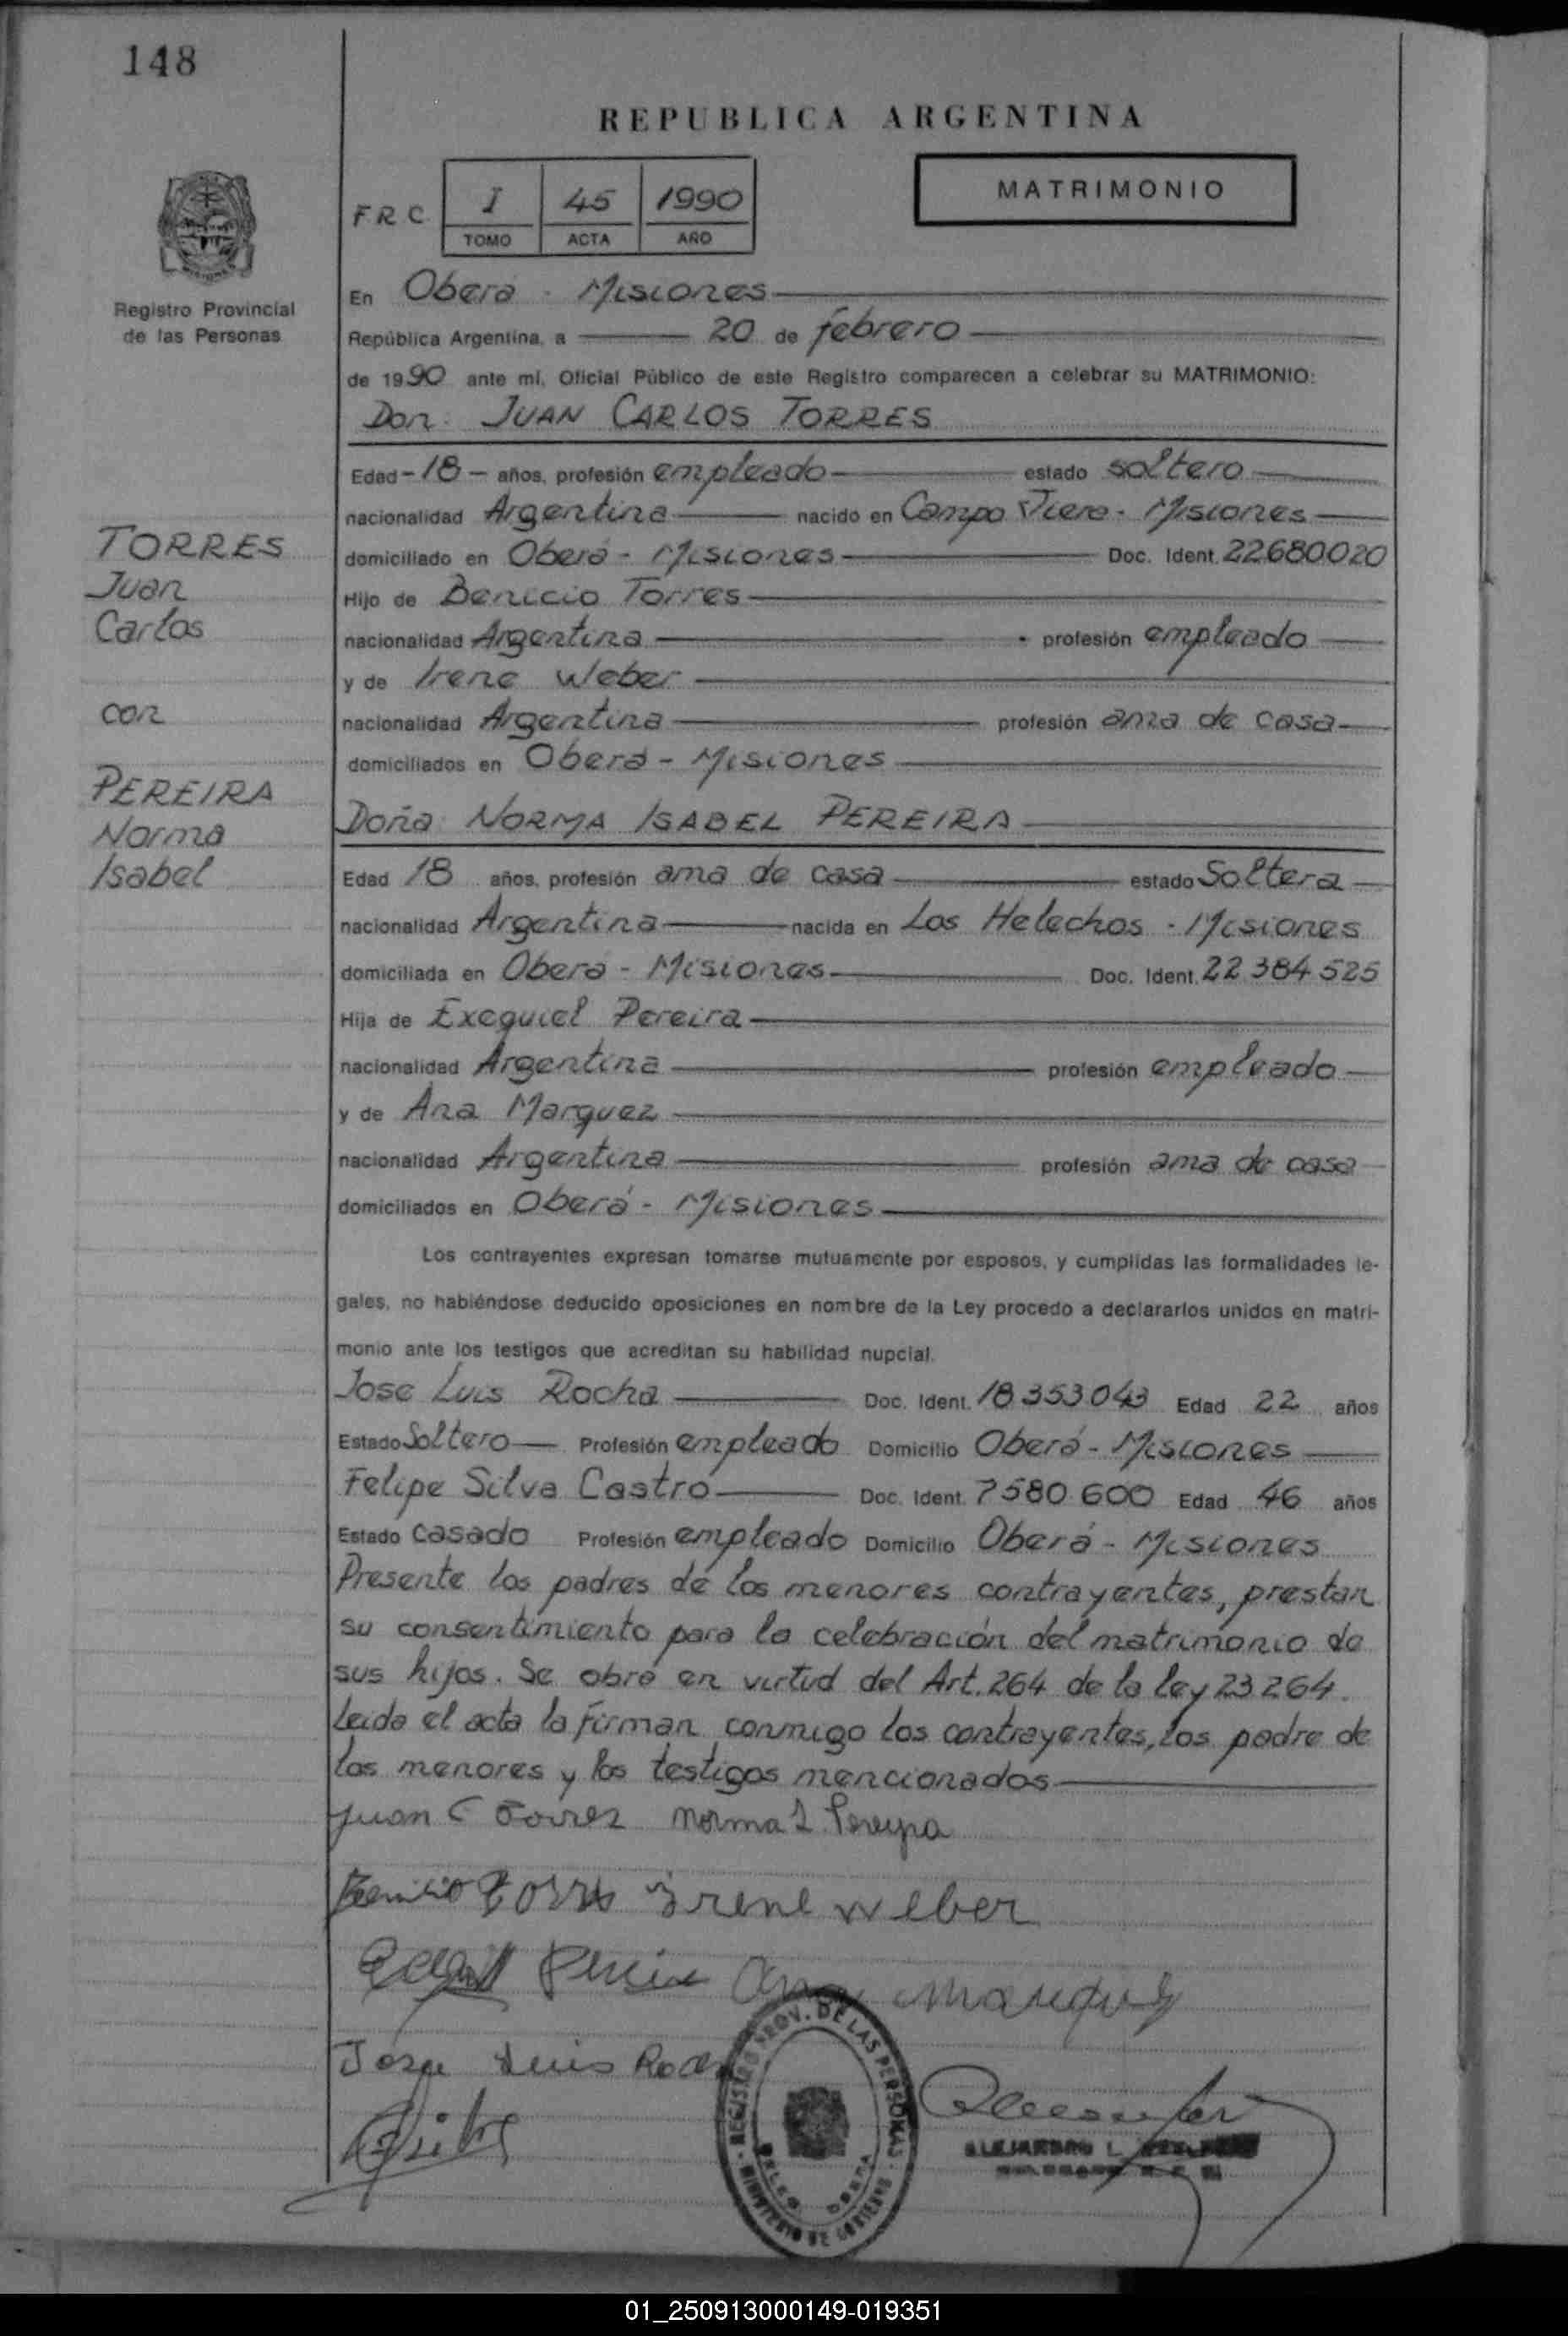 148
REPUBLICA ARGENTINA
Registro Provincial
de las Personas
F.R.C. I 45 1990
TOMO ACTA AÑO
MATRIMONIO
En Oberá - Misiones
República Argentina, a 20 de febrero
de 1990 ante mí, Oficial Público de este Registro comparecen a celebrar su MATRIMONIO:
Don JUAN CARLOS TORRES
Edad - 18 - años, profesión empleado estado soltero
nacionalidad Argentina nacido en Campo Viera - Misiones
domiciliado en Oberá - Misiones Doc. Ident. 22680020
Hijo de Benicio Torres
nacionalidad Argentina profesión empleado
y de Irene Weber
nacionalidad Argentina profesión ama de casa
domiciliados en Oberá - Misiones
TORRES
Juan
Carlos
con
PEREIRA
Norma
Isabel
Doña NORMA ISABEL PEREIRA
Edad 18 años, profesión ama de casa estado Soltera
nacionalidad Argentina nacida en Los Helechos - Misiones
domiciliada en Oberá - Misiones Doc. Ident. 22.384.525
Hija de Exequiel Pereira
nacionalidad Argentina profesión empleado
y de Ana Marquez
nacionalidad Argentina profesión ama de casa
domiciliados en Oberá - Misiones
Los contrayentes expresan tomarse mutuamente por esposos, y cumplidas las formalidades le-
gales, no habiéndose deducido oposiciones en nombre de la Ley procedo a declararlos unidos en matri-
monio ante los testigos que acreditan su habilidad nupcial.
Jose Luis Rocha Doc. Ident. 18.353.043 Edad 22 años
Estado Soltero Profesión empleado Domicilio Oberá - Misiones
Felipe Silva Castro Doc. Ident. 7580.600 Edad 46 años
Estado Casado Profesión empleado Domicilio Oberá - Misiones
Presente los padres de los menores contrayentes, prestan
su consentimiento para la celebración del matrimonio de
sus hijos. Se obró en virtud del Art. 264 de la ley 23264.
Leida el acta la firman conmigo los contrayentes, los padre de
los menores y los testigos mencionados
Juan C Torrez Norma I. Pereyra
Benicio Torres Irene Weber
Pereira Ana Marquez
Jose Luis Rocha
REGISTRO PROV. DE LAS PERSONAS
MINISTERIO DE GOBIERNO
ALEJANDRO L.
01_250913000149-019351